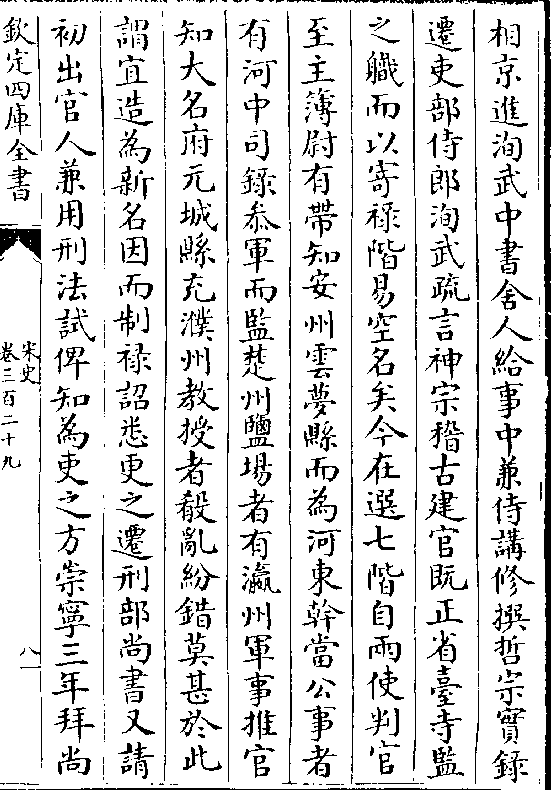 相京進洵武中書舍人給事中兼侍講修撰哲宗實録
遷吏部侍郎洵武疏言神宗稽古建官既正省臺寺監
之職而以寄禄階易空名矣今在選七階自兩使判官
至主簿尉有帶知安州雲夢縣而為河東幹當公事者
有河中司錄叅軍而監楚州鹽場者有瀛州軍事推官
知大名府元城縣充濮州教授者殽亂紛錯莫甚於此
謂宜造為新名因而制禄詔悉更之遷刑部尚書又請
初出官人兼用刑法試俾知為吏之方崇寧三年拜尚
欽定四庫全書
宋史
卷三百二十九
八